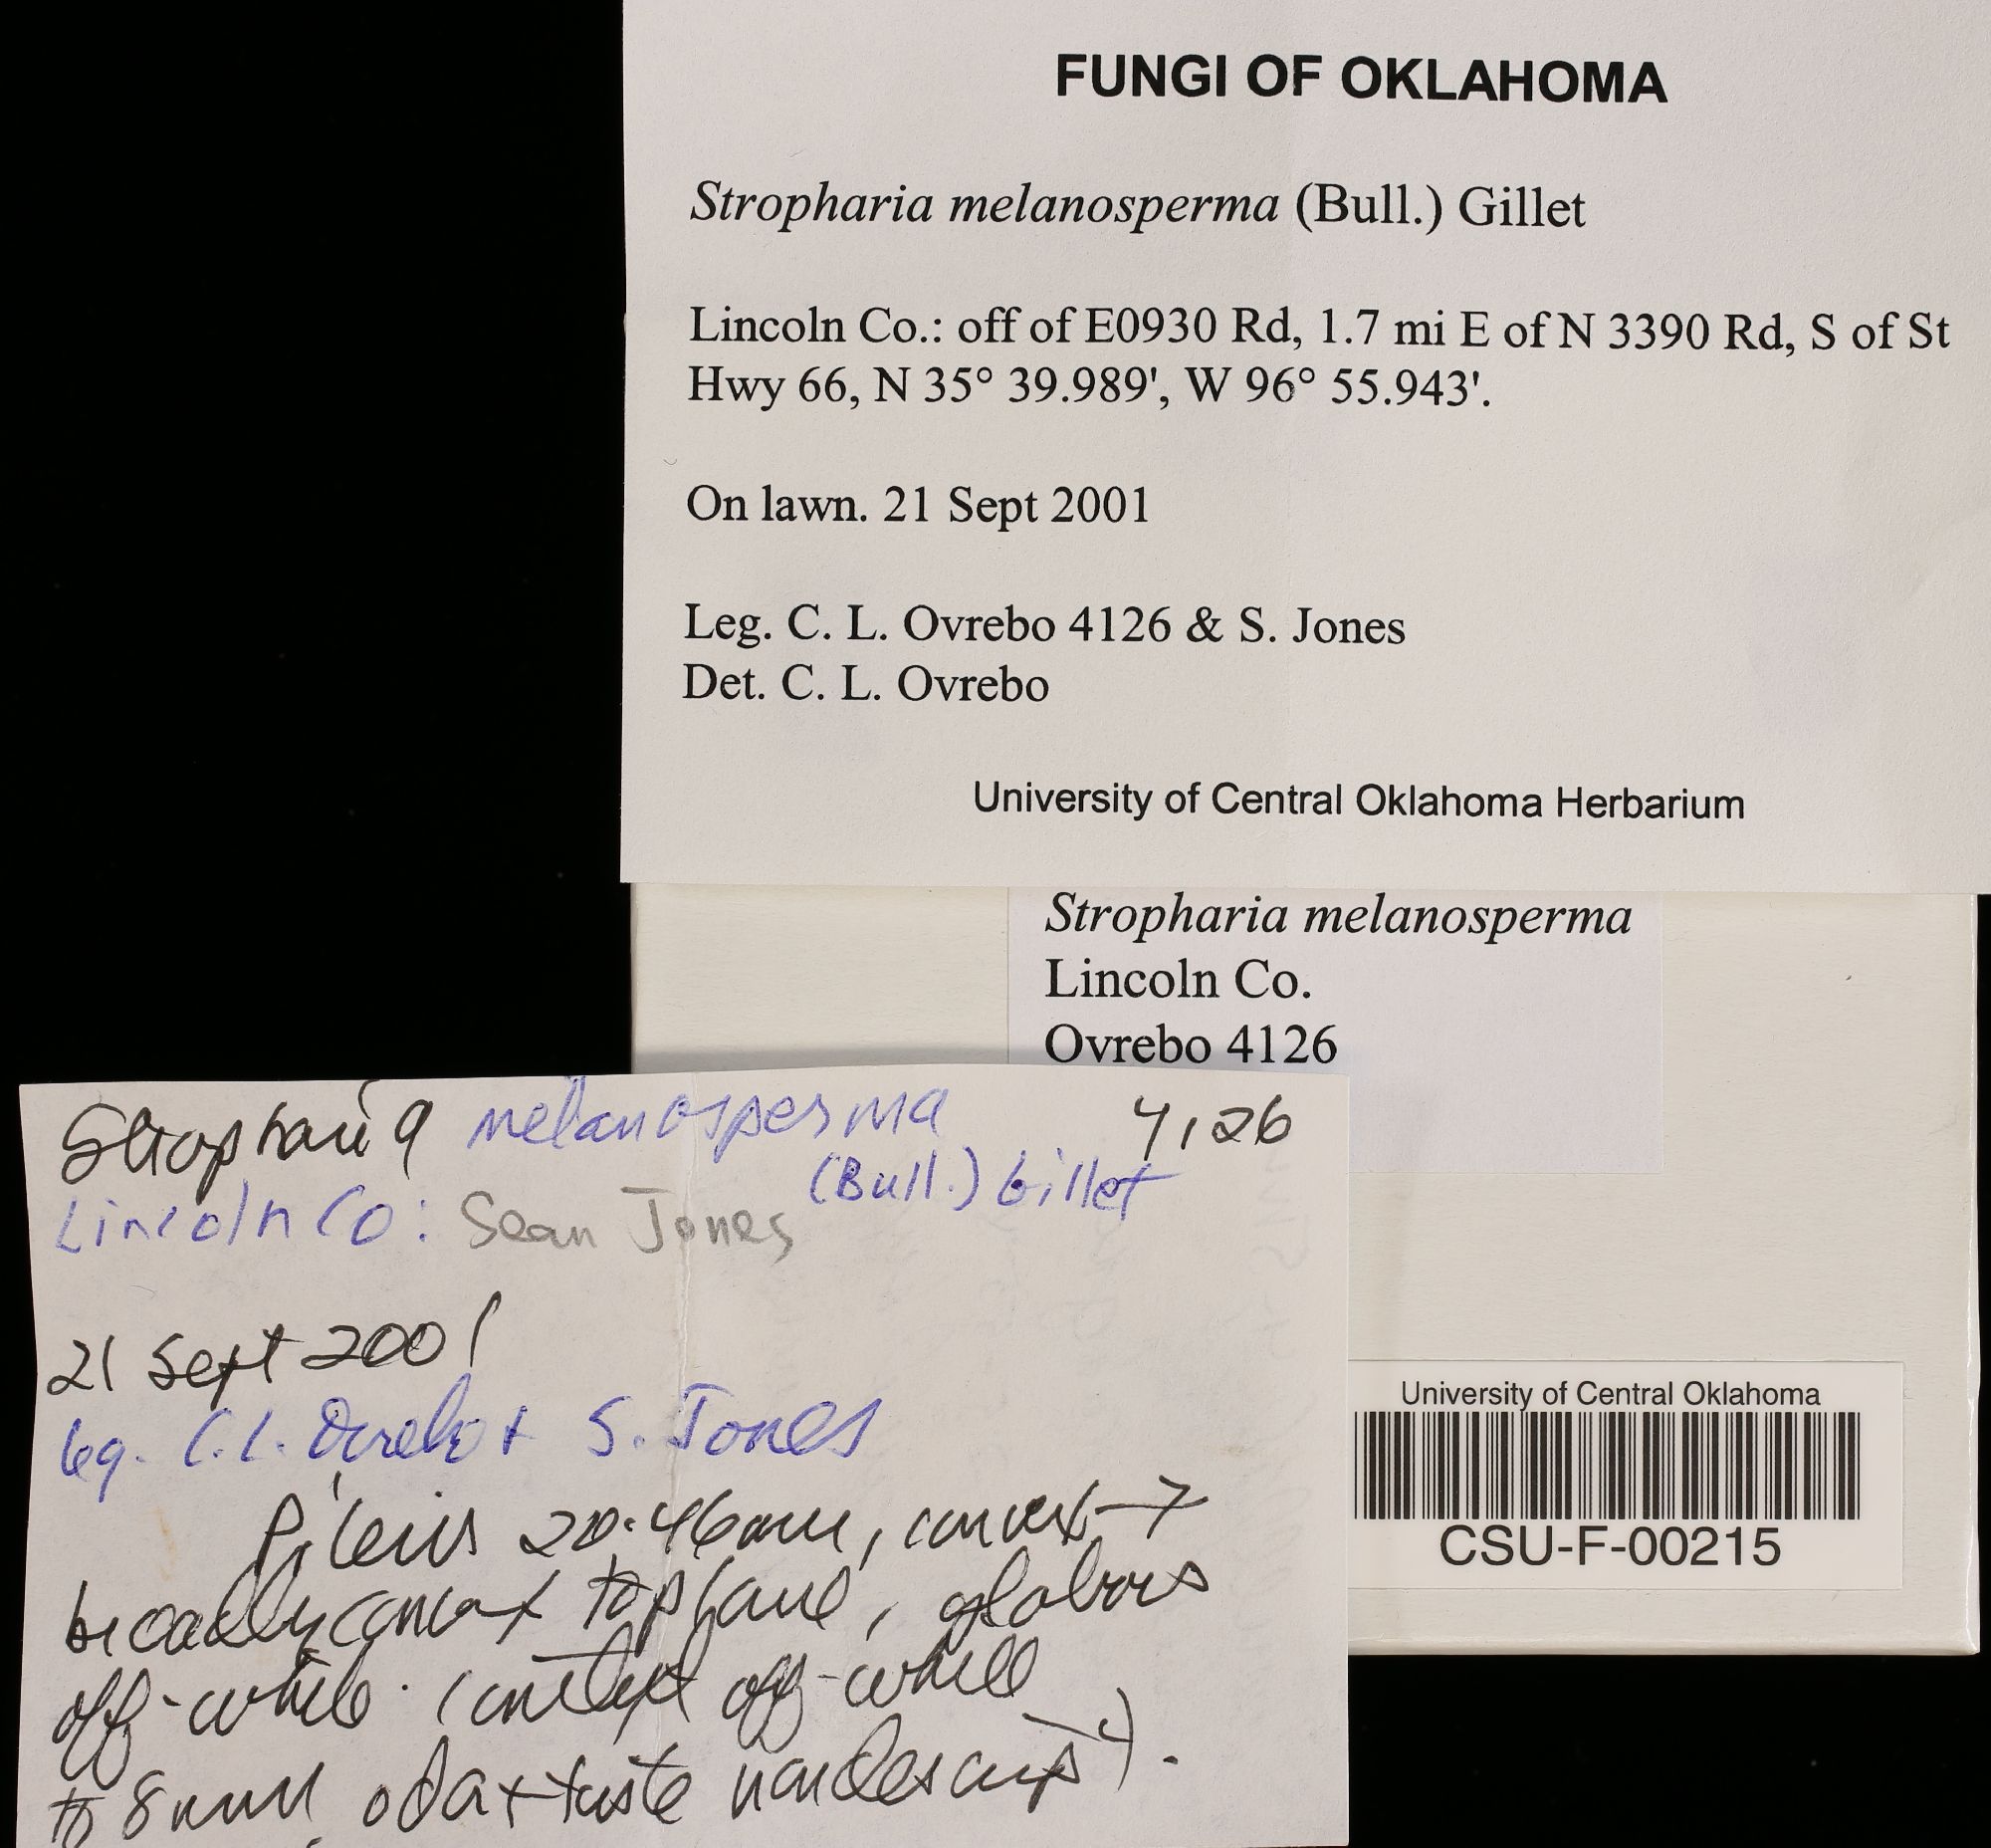 FUNGI OF OKLAHOMA
Stropharia melanosperma (Bull.) Gillet
Lincoln Co.: off of E0930 Rd, 1.7 mi E of N 3390 Rd, S of St
Hwy 66, N 35° 39.989', W 96° 55.943'.
On lawn. 21 Sept 2001
Leg. C. L. Ovrebo 4126 & S. Jones
Det. C. L. Ovrebo
University of Central Oklahoma Herbarium
Stropharia melanosperma
Lincoln Co.
Ovrebo 4126
Stropharia melanosperma 4126
(Bull.) Gillet
Lincoln Co: Sean Jones
21 Sept 2001
leg. C.L. Ovrebo + S. Jones
Pileus 20-46mm, convex →
broadly convex to plane, glabrous
off-white. Context off-white
to 8mm odor + taste nondescript.
University of Central Oklahoma
CSU-F-00215